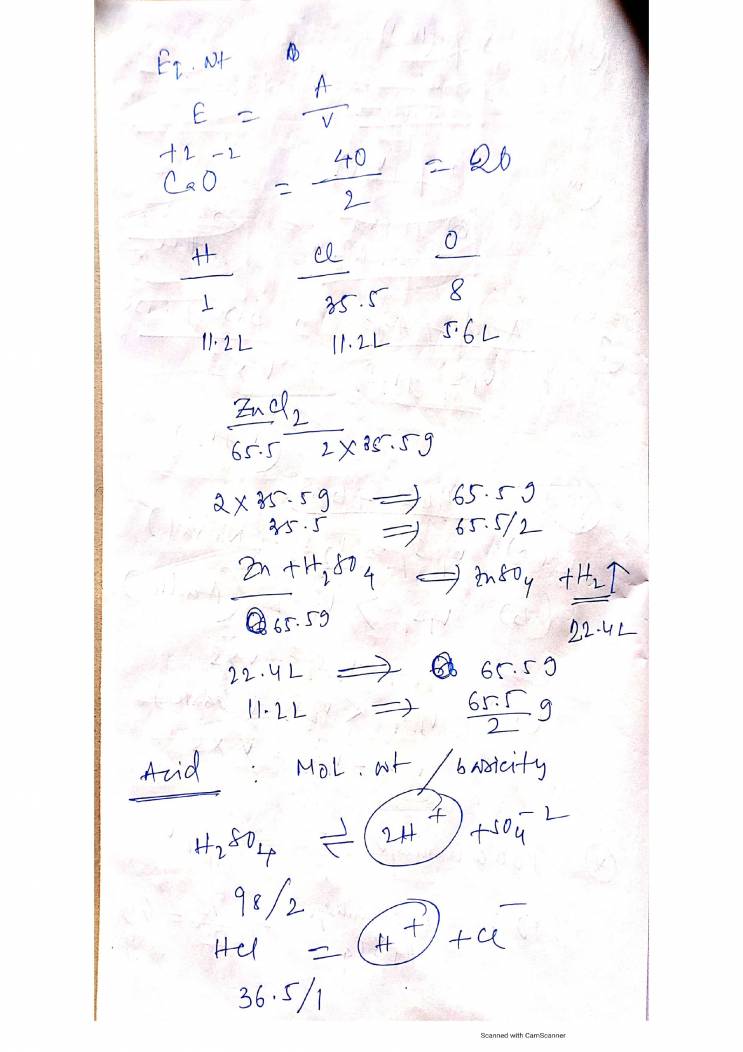 Eq. Wt
E = A/V
+2 -2
CaO = 40/2 = 20
H Cl O
1 35.5 8
11.2L 11.2L 5.6L
ZnCl2
65.5 2×35.5g
2×35.5g ⇒ 65.5g
35.5 ⇒ 65.5/2
Zn + H2SO4 ⇒ ZnSO4 + H2↑
65.5g 22.4L
22.4L ⇒ 65.5g
11.2L ⇒ 65.5/2 g
Acid : Mol. wt / basicity
H2SO4 ⇌ 2H+ + SO4-2
98/2
HCl = H+ + Cl-
36.5/1
Scanned with CamScanner